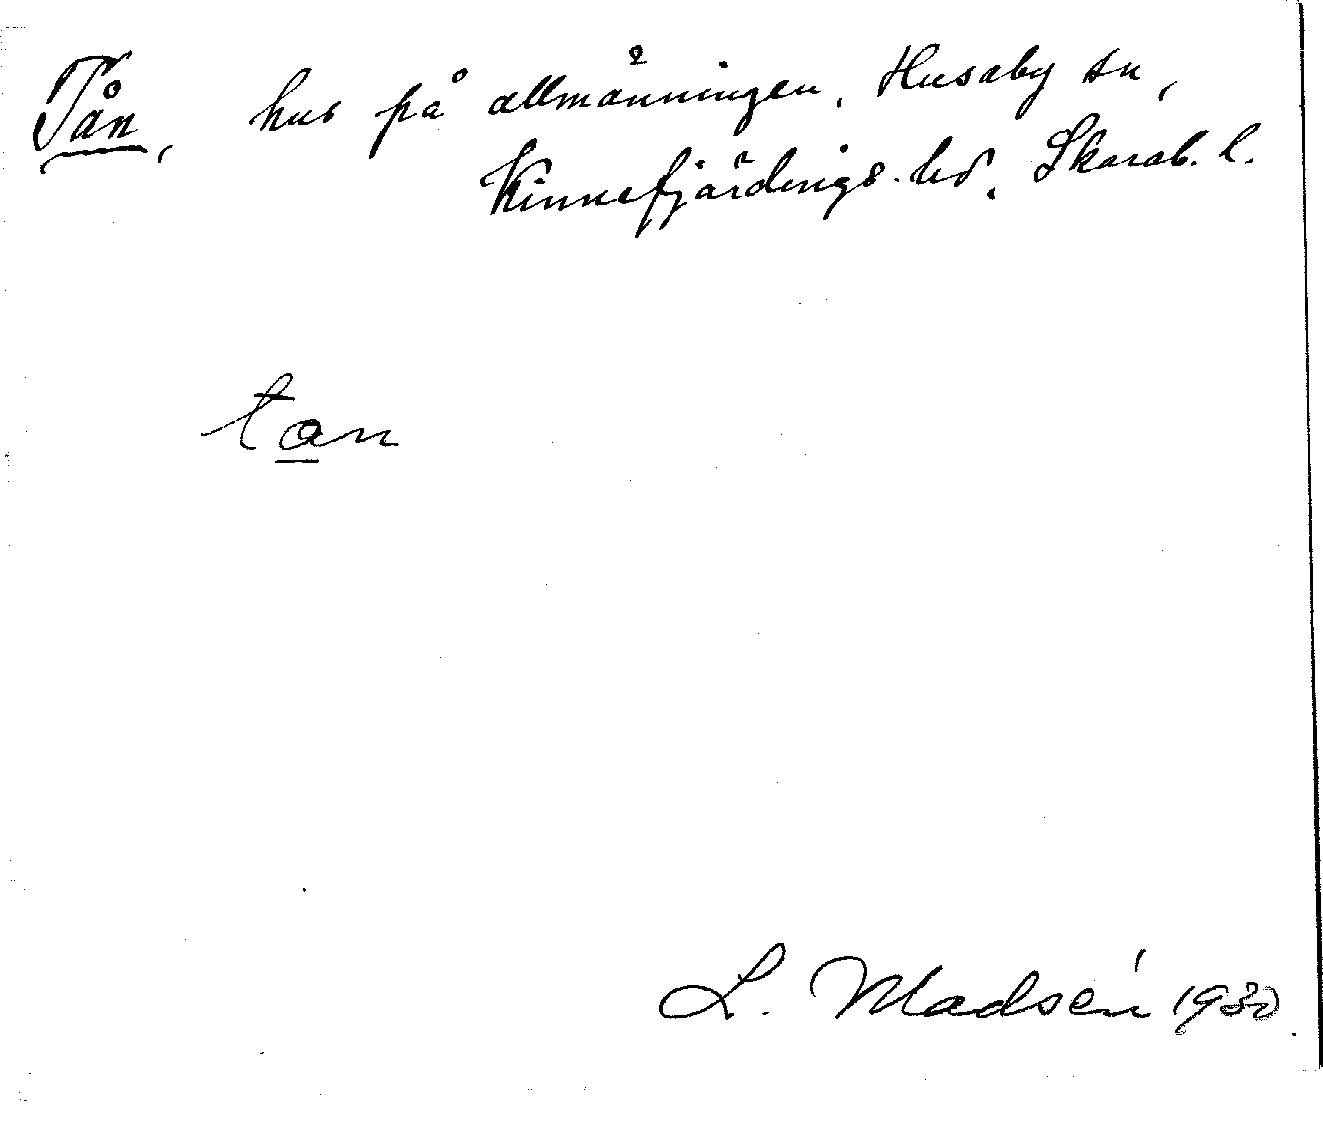 Tån, hus på allmänningen, Husaby sn,
Kinnefjärdings hd. Skarab. l.
tan
L. Madsén 1930